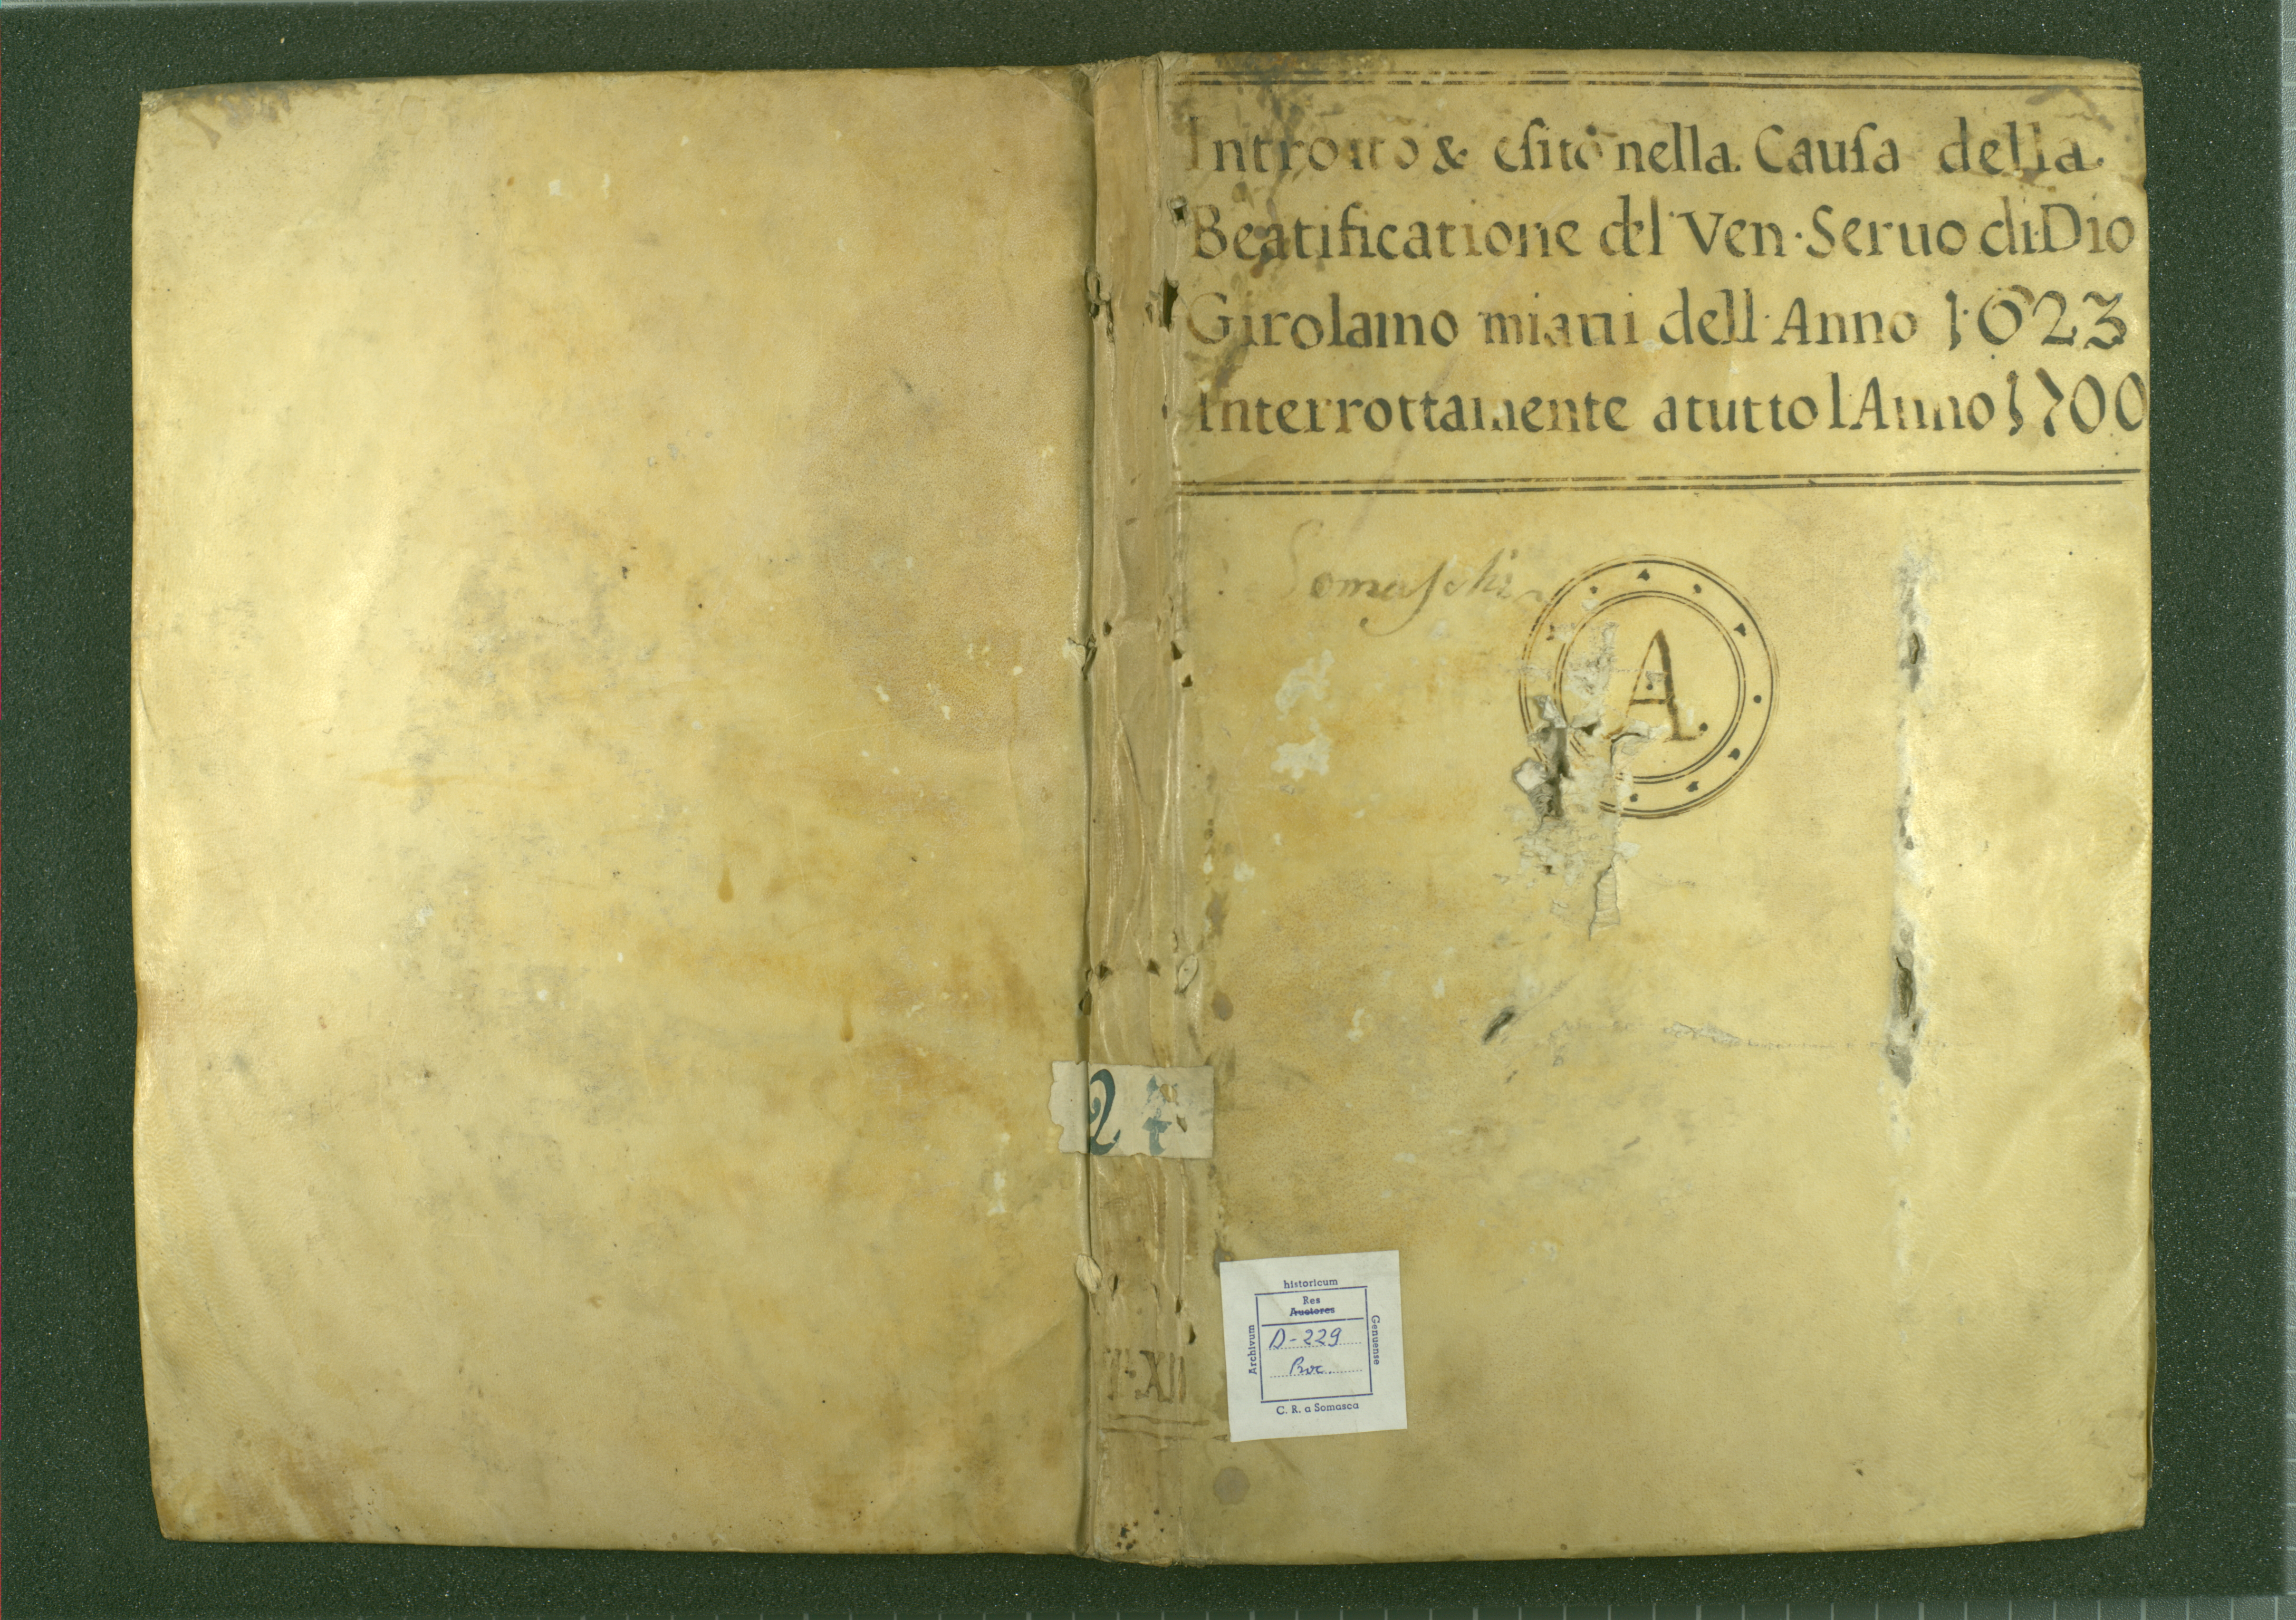 Introito & esito nella Causa della
Beatificatione del Ven. Seruo di Dio
Girolamo miani dell Anno 1623
Interrottamente a tutto l Anno 1700
Somaschi
A
24
historicum
Res
Auctores
Archivum
D-229
Genuense
C. R. a Somasca